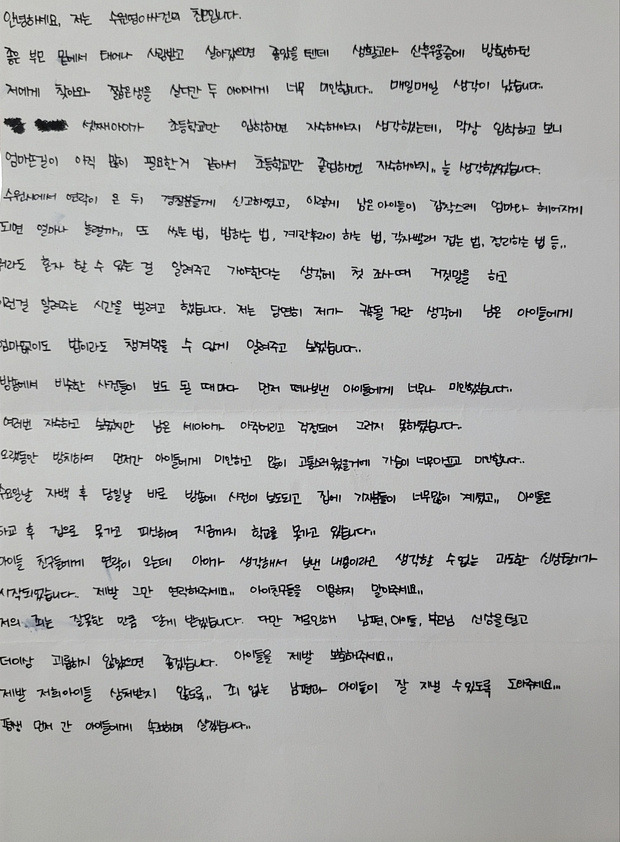 안녕하세요, 저는 수원영아사건의 친모입니다.
좋은 부모 밑에서 태어나 사랑받고 살아갔으면 좋았을텐데 생활고와 산후우울증에 방황하던
저에게 찾아와 짧은생을 살다간 두 아이에게 너무 미안합니다.. 매일매일 생각이 났습니다..
셋째아이가 초등학교만 입학하면 자수해야지 생각했는데, 막상 입학하고 보니
엄마손길이 아직 많이 필요한거 같아서 초등학교만 졸업하면 자수해야지.. 늘 생각했었습니다.
수원시에서 연락이 온 뒤 경찰분들께 신고하였고, 이렇게 남은아이들이 갑작스레 엄마와 헤어지게
되면 얼마나 놀랄까.. 또 씻는법, 밥하는 법, 계란후라이 하는 법, 각자빨래 접는 법, 정리하는 법 등..
뭐라도 혼자 할 수 있는 걸 알려주고 가야한다는 생각에 첫 조사때 거짓말을 하고
이런걸 알려주는 시간을 벌려고 했습니다. 저는 당연히 제가 구속될 거란 생각에 남은 아이들에게
엄마없이도 밥이라도 챙겨먹을 수 있게 알려주고 싶었습니다..
방송에서 비슷한 사건들이 보도 될 때마다 먼저 떠나보낸 아이들에게 너무나 미안했습니다..
여러번 자수하고 싶었지만 남은 세아이가 아직어리고 걱정되어 그러지 못하였습니다..
오랫동안 방치하여 먼저간 아이들에게 미안하고 많이 고통스러웠을거에 가슴이 너무아프고 미안합니다..
수요일날 자백 후 당일날 바로 방송에 사건이 보도되고 집에 기자분들이 너무많이 계셨고.. 아이들은
하교 후 집으로 못가고 피신하여 지금까지 학교를 못가고 있습니다..
아이들 친구들에게 연락이 오는데 아이가 생각해서 보낸 내용이라고 생각할 수없는 과도한 신상털기가
시작되었습니다.. 제발 그만 연락해주세요.. 아이친구들을 이용하지 말아주세요..
저의 죄는 잘못한 만큼 달게 받겠습니다. 다만 저로인해 남편, 아이들, 부모님 신상을 털고
더이상 괴롭히지 않았으면 좋겠습니다. 아이들을 제발 보호해주세요..
제발 저희아이들 상처받지 않도록.. 죄 없는 남편과 아이들이 잘 지낼 수있도록 도와주세요...
평생 먼저 간 아이들에게 속죄하며 살겠습니다..